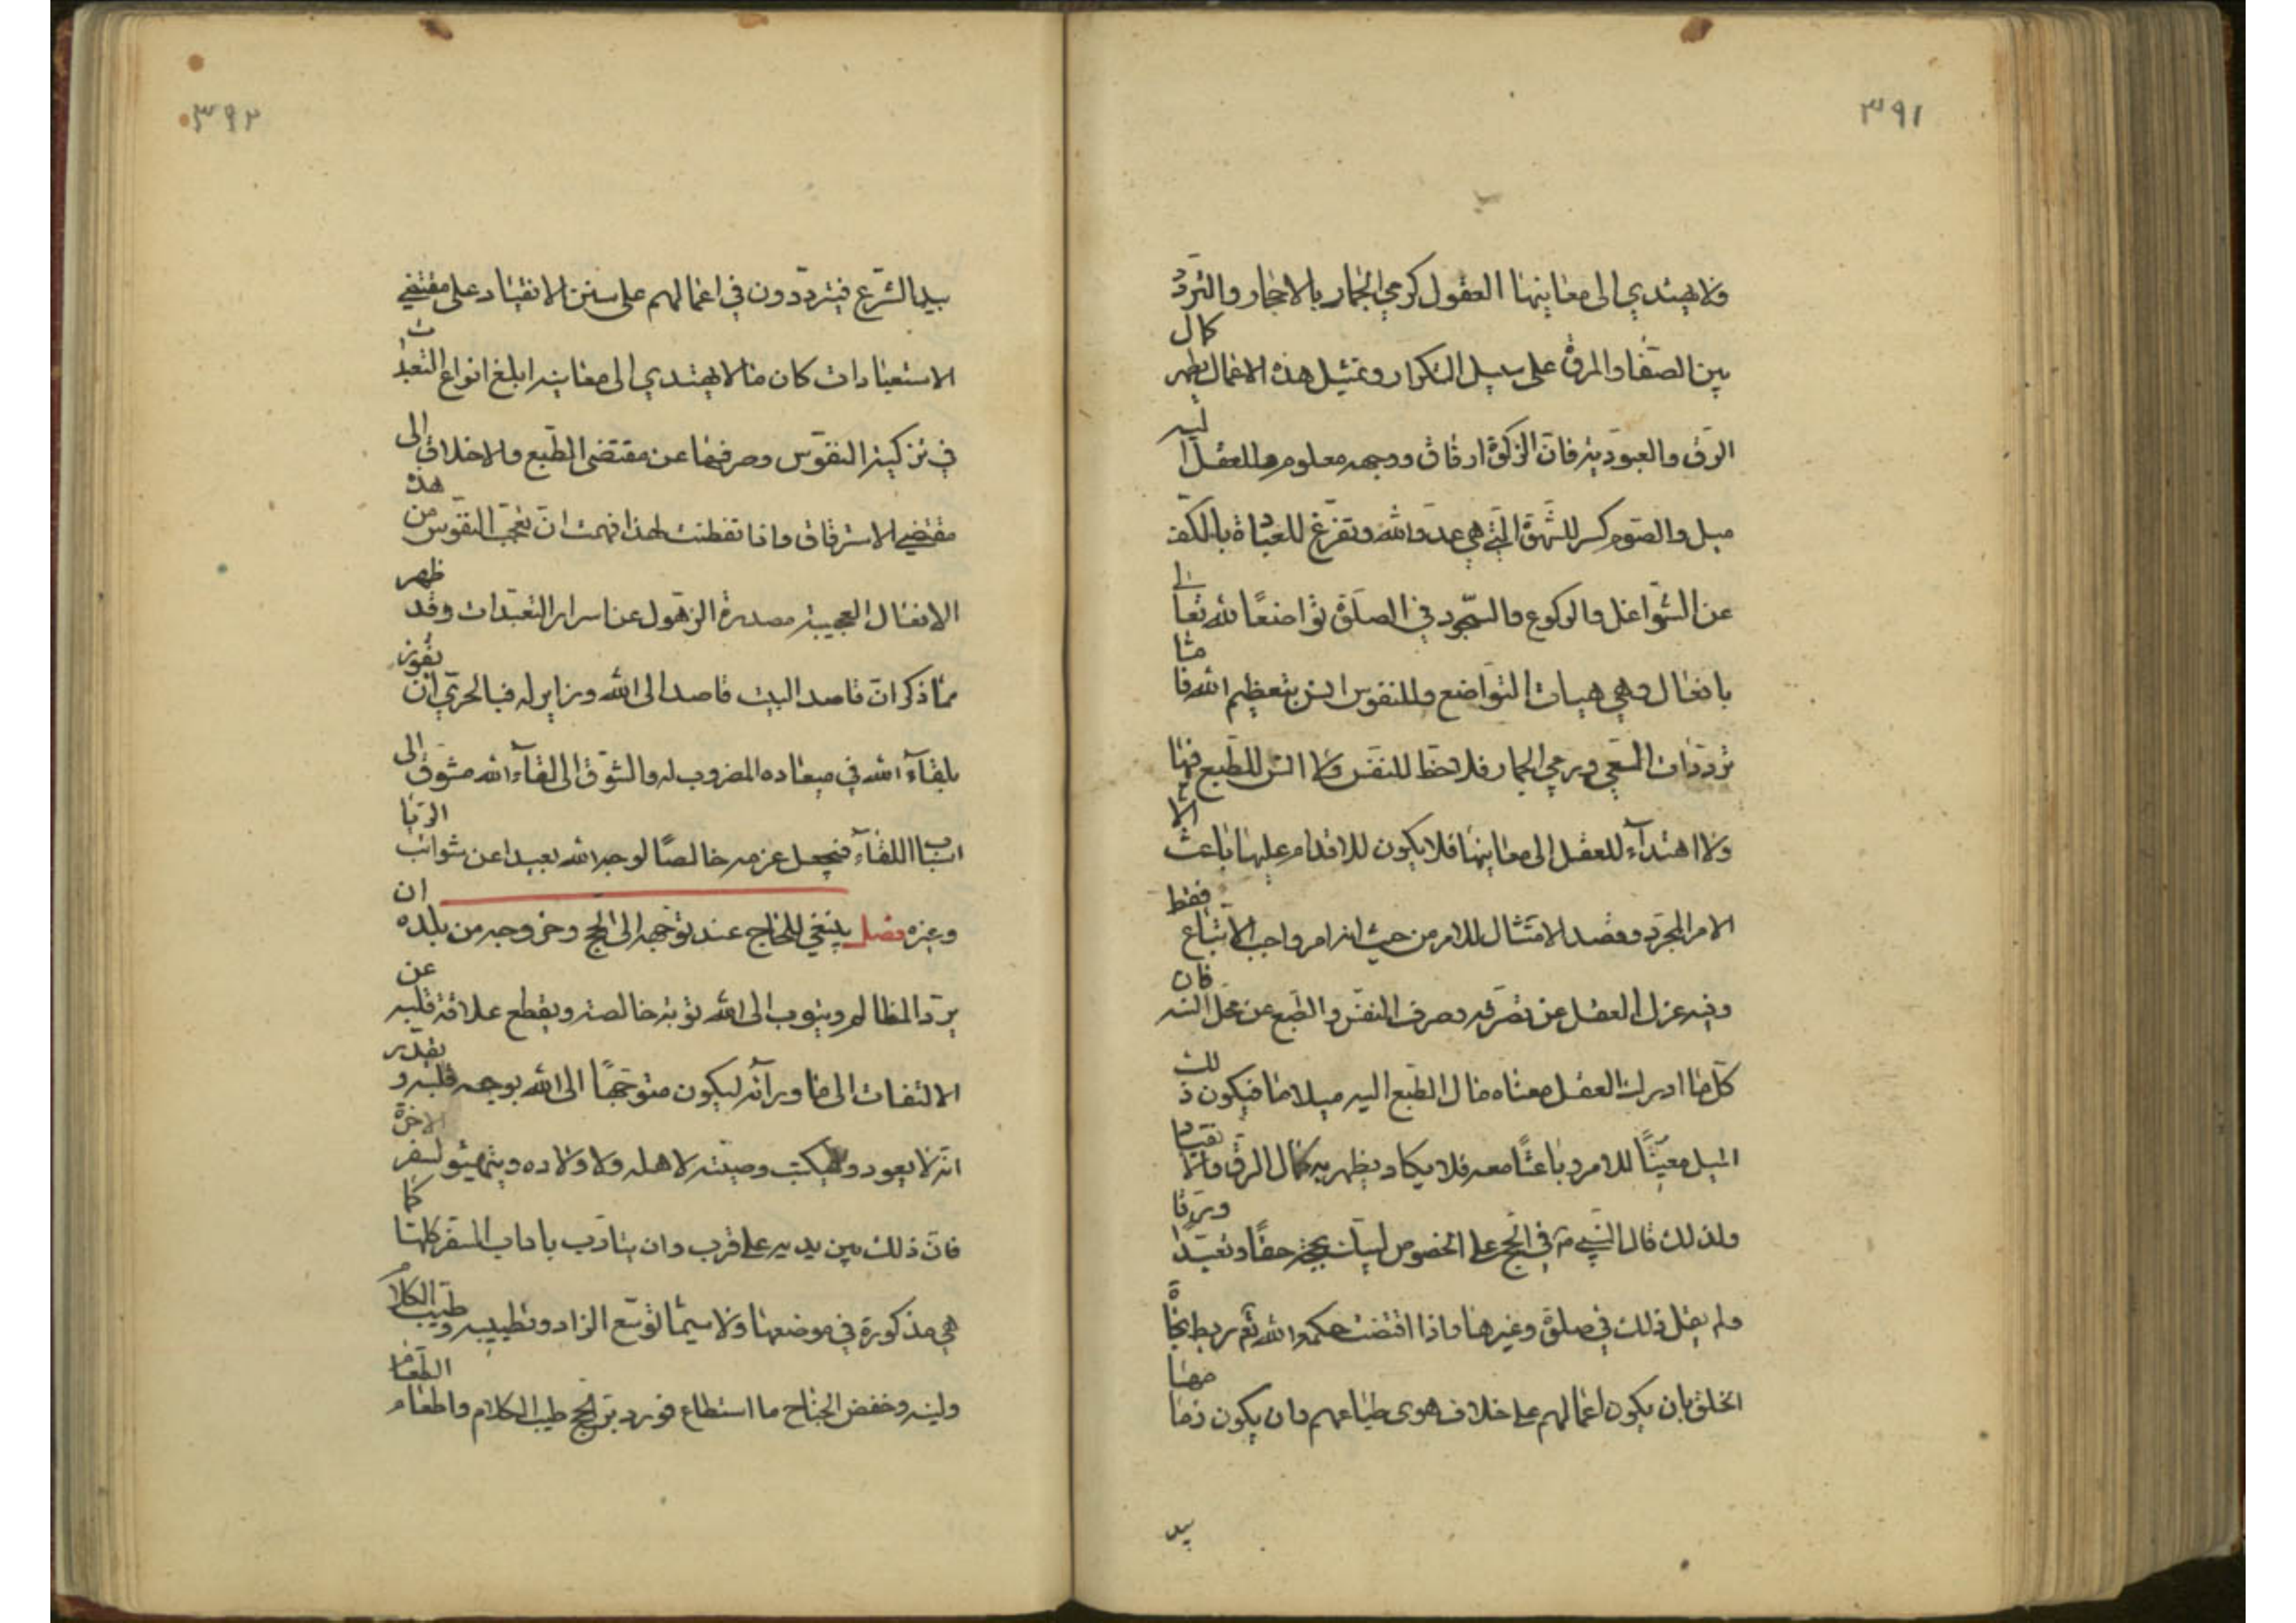 ٣٩١
ولا يهتدي الى معاينها العقول كرمي الجمار بالاحجار والتردد
بين الصفا والمروة على سبيل التكرار وبمثيل هذه الاعمال يظهر كمال
الرق والعبودية فان الزكوة ارفاق ووجهه معلوم وللعقل اليه
ميل والصوم كسر للشهوة التي هي عدو الله وتفرغ للعبادة بالكف
عن الشواغل والركوع والسجود في الصلوة تواضعًا لله تعالى
بافعال وهي هيات التواضع وللنفوس انس بتعظيم الله فاما
ترددات السعي ورمي الجمار فلا حظ للنفس ولا انس للطبع فيها
ولا اهتدآء للعقل الى معاينها فلا يكون للاقدام عليها باعث الا
الامر المجرد وقصد الامتثال للامر من حيث انه امر واجب الاتباع فقط
وفيه عزل العقل عن تصرفه وصرف النفس والطبع عن محل انسه فان
كل ما ادرك العقل معناه مال الطبع اليه ميلا ما فيكون ذلك
الميل معينًا للامر وباعثًا معه فلا يكاد يظهر به كمال الرق والانقياد
ولذلك قال النبي ص في الحج على الخصوص لبيك بحجة حقًا وتعبدا ورقا
ولم يقل ذلك في صلوة وغيرها واذا اقتضت حكمة الله تع ربط نجاة
الخلق بان يكون اعمالهم على خلاف هوى طباعهم وان يكون زمامها
بيد
٣٩٢
بيد الشرع فيترددون في اعمالهم على سنن الانقياد على مقتضي
الاستعبادات كان ما لا يهتدي الى معاينه ابلغ انواع التعبدات
في تزكية النفوس وصرفها عن مقتضى الطبع والاخلاق الى
مقتضي الاسترقاق واذا تفطنت لهذا فهمت ان تعجب النفوس من هذه
الافعال العجيبة مصدره الذهول عن اسرار التعبدات وقد ظهر
مما ذكر ان قاصد البيت قاصد الى الله وزاير له فبالحري ان يفوز
بلقآء الله في ميعاده المضروب له والشوق الى لقآء الله مشوق الى
اسباب اللقآء فيجعل عزمه خالصًا لوجه الله بعيدا عن شوائب الريا
وغيره فصل ينبغي للحاج عند توجهه الى الحج وخروجه من بلده ان
يرد المظالم ويتوب الى الله توبة خالصة ويقطع علاقة قلبه عن
الالتفات الى ما ورآئه ليكون متوجهًا الى الله بوجه قلبه ويقدر
انه لا يعود وليكتب وصيته لاهله ولاولاده ويتهيئو لسفر الاخرة
فان ذلك بين يديه على قرب وان يتادب باداب السفر كلها كما
هي مذكورة في موضعها ولا سيما توسع الزاد وتطييبه وطيب الكلام
ولينه وخفض الجناح ما استطاع فورد بر الحج طيب الكلام واطعام الطعام